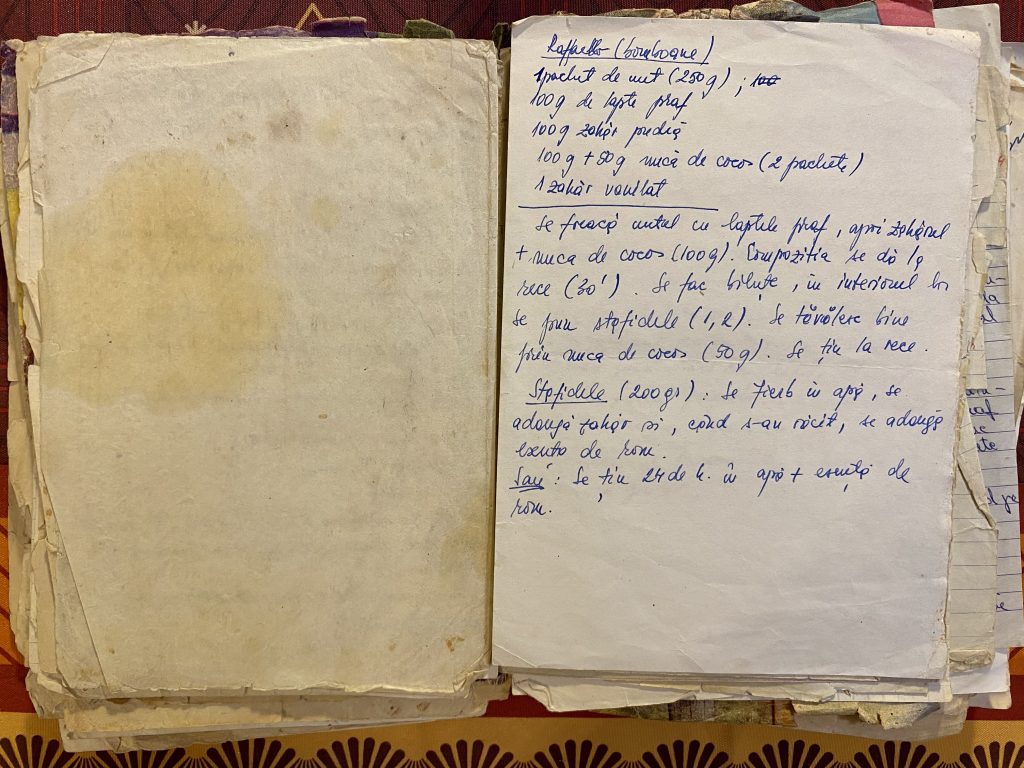 Raffaello (bomboane)
1 pachet de unt (250g) ; 100
100g de lapte praf
100g zahăr pudră
100g + 50g nucă de cocos (2 pachete)
1 zahăr vanilat
Se freacă untul cu laptele praf, apoi zahărul
+ nuca de cocos (100g). Compoziția se dă la
rece (30'). Se fac biluțe, în interiorul lor
se pun stafidele (1, 2). Se tăvălesc bine
prin nuca de cocos (50g). Se țin la rece.
Stafidele (200gr) : Se fierb în apă, se
adaugă zahăr și, când s-au răcit, se adaugă
esența de rom.
Sau : Se țin 24 de h. în apă + esență de
rom.